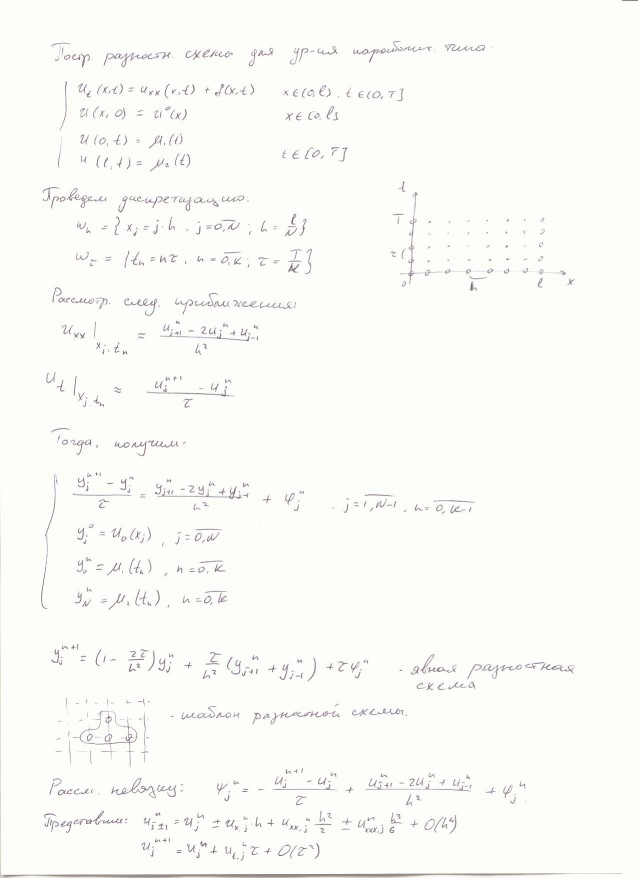 Постр. разностн. схемы для ур-ия параболич. типа:
u_t(x,t) = u_xx(x,t) + f(x,t)   x∈(0,l), t∈(0,T]
u(x,0) = u⁰(x)   x∈[0,l]
u(0,t) = μ₁(t)
u(l,t) = μ₂(t)   t∈[0,T]
Проведем дискретизацию:
ω_h = {x_j = j·h, j=0,N̅; h = l/N}
ω_τ = {t_n = nτ, n = 0,K̅; τ = T/K}
t
T
τ
0
h
l
x
Рассмотр. след. приближения:
u_xx|_{x_j,t_n} ≈ (u_{j+1}^n − 2u_j^n + u_{j-1}^n)/h²
u_t|_{x_j,t_n} ≈ (u_j^{n+1} − u_j^n)/τ
Тогда, получим:
(y_j^{n+1} − y_j^n)/τ = (y_{j+1}^n − 2y_j^n + y_{j-1}^n)/h² + φ_j^n, j=1,N−1, n=0,K−1
y_j^0 = u_0(x_j), j=0,N
y_0^n = μ₁(t_n), n=0,K
y_N^n = μ₂(t_n), n=0,K
y_j^{n+1} = (1 − 2τ/h²)y_j^n + τ/h²(y_{j+1}^n + y_{j-1}^n) + τφ_j^n - явная разностная
схема
- шаблон разностной схемы.
Рассм. невязку: ψ_j^n = −(u_j^{n+1} − u_j^n)/τ + (u_{j+1}^n − 2u_j^n + u_{j-1}^n)/h² + φ_j^n.
Представим: u_{j±1}^n = u_j^n ± u_{x,j}^n·h + u_{xx,j}^n h²/2 ± u_{xxx,j}^n h³/6 + O(h⁴)
u_j^{n+1} = u_j^n + u_{t,j}^n τ + O(τ²)